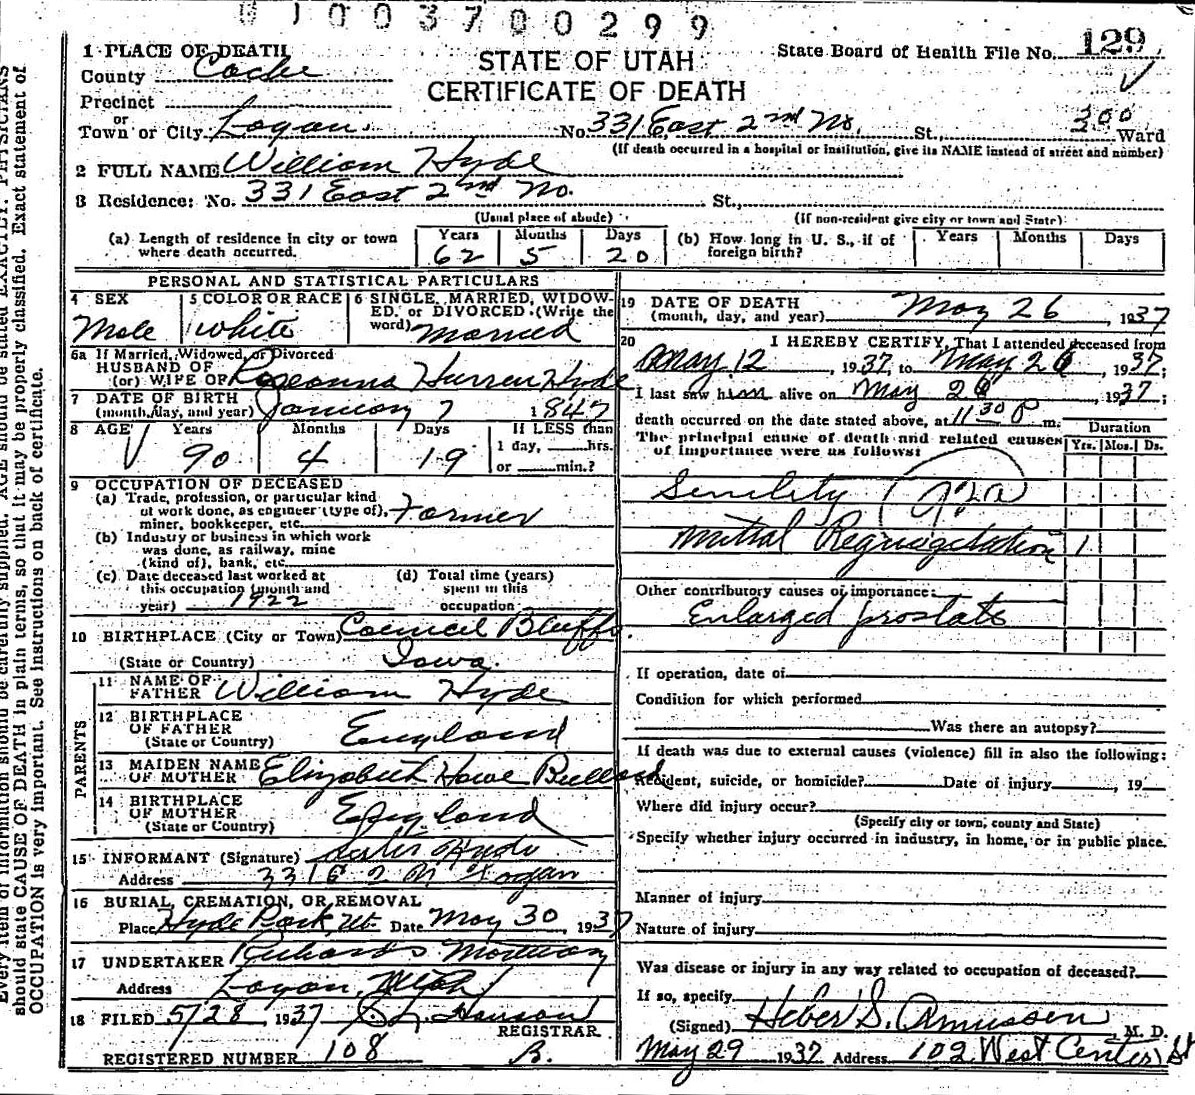 0 1 0 0 3 7 0 0 2 9 9
1 PLACE OF DEATH
County Cache
STATE OF UTAH
CERTIFICATE OF DEATH
State Board of Health File No. 129
Precinct
or
Town or City Logan. No. 331 East 2nd No. St., 300 Ward
(If death occurred in a hospital or institution, give its NAME instead of street and number)
2 FULL NAME William Hyde
3 Residence: No. 331 East 2nd No. St.,
(Usual place of abode) (If non-resident give city or town and State)
(a) Length of residence in city or town where death occurred. Years 62 Months 5 Days 20 (b) How long in U. S., if of foreign birth? Years Months Days
PERSONAL AND STATISTICAL PARTICULARS
4 SEX Male
5 COLOR OR RACE white
6 SINGLE, MARRIED, WIDOW-
ED, or DIVORCED (Write the
word) Married
6a If Married, Widowed, or Divorced
HUSBAND OF
(or) WIFE OF Roseanna Hurren Hyde
7 DATE OF BIRTH
(month, day, and year) January 7 1847
8 AGE Years 90 Months 4 Days 19 If LESS than
1 day, hrs.
or min.?
9 OCCUPATION OF DECEASED
(a) Trade, profession, or particular kind
of work done, as engineer (type of),
miner, bookkeeper, etc. Farmer
(b) Industry or business in which work
was done, as railway, mine
(kind of), bank, etc.
(c) Date deceased last worked at
this occupation (month and
year) 1922
(d) Total time (years)
spent in this
occupation
10 BIRTHPLACE (City or Town) Council Bluffs
(State or Country) Iowa.
PARENTS
11 NAME OF
FATHER William Hyde
12 BIRTHPLACE
OF FATHER
(State or Country) England
13 MAIDEN NAME
OF MOTHER Elizabeth Howe Bullard
14 BIRTHPLACE
OF MOTHER
(State or Country) England
15 INFORMANT (Signature) Hyde
Address 331 E 2 N Logan
16 BURIAL, CREMATION, OR REMOVAL
Place Hyde Park, Ut. Date May 30, 1937
17 UNDERTAKER Richards Mortuary
Address Logan, Utah
18 FILED 5/28, 1937 Hanson
REGISTRAR
REGISTERED NUMBER 108
19 DATE OF DEATH
(month, day, and year) May 26, 1937
20 I HEREBY CERTIFY, That I attended deceased from
May 12, 1937, to May 26, 1937;
I last saw him alive on May 26, 1937;
death occurred on the date stated above, at 11 30 P m.
The principal cause of death and related causes
of importance were as follows:
Duration
Yrs. Mos. Ds.
Senility 92a
Mitral Regurgitation 1
Other contributory causes of importance:
Enlarged prostate
If operation, date of
Condition for which performed
Was there an autopsy?
If death was due to external causes (violence) fill in also the following:
Accident, suicide, or homicide? Date of injury, 19
Where did injury occur?
(Specify city or town, county and State)
Specify whether injury occurred in industry, in home, or in public place.
Manner of injury
Nature of injury
Was disease or injury in any way related to occupation of deceased?
If so, specify
(Signed) Heber S. Rasmussen M. D.
May 29 1937 Address 102 West Center St
should state CAUSE OF DEATH in plain terms, so that it may be properly classified. Exact statement of
OCCUPATION is very important. See instructions on back of certificate.